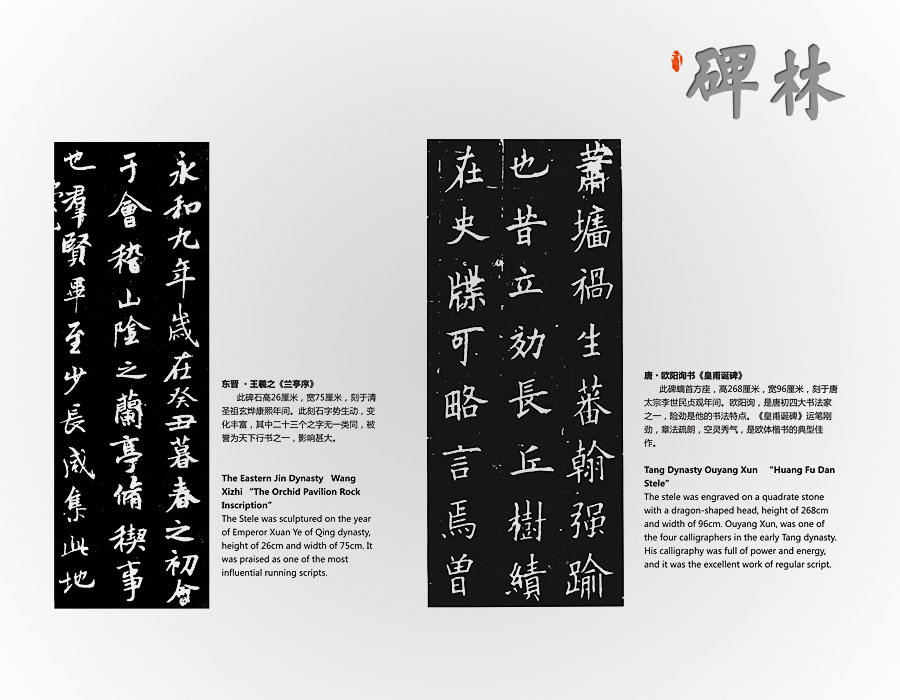 碑林
永和九年歲在癸丑暮春之初會
于會稽山陰之蘭亭脩稧事
也羣賢畢至少長咸集此地
东晋 · 王羲之《兰亭序》
此碑石高26厘米，宽75厘米，刻于清
圣祖玄烨康熙年间。此刻石字势生动，变
化丰富，其中二十三个之字无一类同，被
誉为天下行书之一，影响甚大。
The Eastern Jin Dynasty Wang
Xizhi “The Orchid Pavilion Rock
Inscription”
The Stele was sculptured on the year
of Emperor Xuan Ye of Qing dynasty,
height of 26cm and width of 75cm. It
was praised as one of the most
influential running scripts.
蕭墻禍生蕃翰强踰
也昔立効長丘樹績
在史牒可略言焉曾
唐 · 欧阳询书《皇甫诞碑》
此碑螭首方座，高268厘米，宽96厘米，刻于唐
太宗李世民贞观年间。欧阳询，是唐初四大书法家
之一，险劲是他的书法特点。《皇甫诞碑》运笔刚
劲，章法疏朗，空灵秀气，是欧体楷书的典型佳
作。
Tang Dynasty Ouyang Xun “Huang Fu Dan
Stele”
The stele was engraved on a quadrate stone
with a dragon-shaped head, height of 268cm
and width of 96cm. Ouyang Xun, was one of
the four calligraphers in the early Tang dynasty.
His calligraphy was full of power and energy,
and it was the excellent work of regular script.